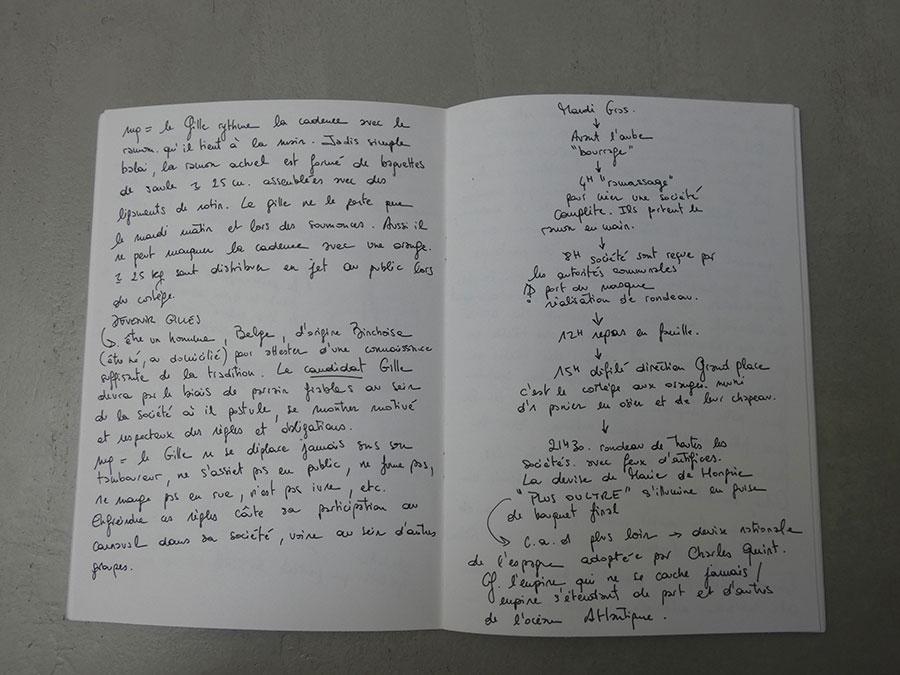 mq = le Gille rythme la cadence avec le
ramon qu'il tient à la main. Jadis simple
balai, la ramon actuel est formé de baguettes
de saule ± 25 cm. assemblées avec des
ligaments de rotin. Le gille ne le porte que
le mardi matin et lors des soumonces. Aussi il
ne peut marquer la cadence avec une orange.
± 25 kg sont distribués en jet au public lors
du cortège.
DEVENIR GILLES
↳ être un homme, Belge, d'origine Binchoise
(être né, ou domicilié) pour attester d'une connaissance
suffisante de la tradition. Le candidat Gille
devra par le biais de parrain fiables au sein
de la société où il postule, se montrer motivé
et respecteux des règles et obligations.
mq = le Gille ne se déplace jamais sans son
tamboureur, ne s'assiet pas en public, ne fume pas,
ne mange pas en rue, n'est pas ivre, etc.
Enfreindre ces règles coûte sa participation au
carnaval dans sa société, voire au sein d'autres
groupes.
Mardi Gras.
↓
Avant l'aube
"bourrage"
↓
4H "ramassage"
pour créer une société
complète. Ils portent le
ramon en main.
↓
8H société sont reçue par
les autorités communales
port du masque
réalisation de rondeau.
↓
12H repas en famille.
↓
15H défilé direction Grand place
c'est le cortège aux oranges. muni
d'1 panier en osier et de leur chapeau.
↓
21H30. rondeau de toutes les
sociétés. avec feux d'artifices.
La devise de Marie de Hongrie
"PLUS OULTRE" s'illumine en guise
de bouquet final
↳ c.a.d plus loin → devise nationale
de l'espagne adoptée par Charles Quint.
Cf. l'empire qui ne se couche jamais /
empire s'étendant de part et d'autres
de l'océan Atlantique.